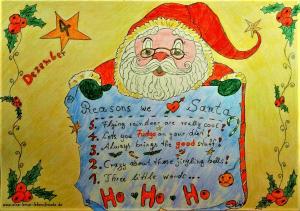 4
Dezember
Reasons we ♥ Santa
5. Flying reindeer are really cool!
4. Lets you fudge on your diet!
3. Always brings the good stuff!
2. Crazy about those jingling bells!
1. Three little words...
Ho Ho Ho